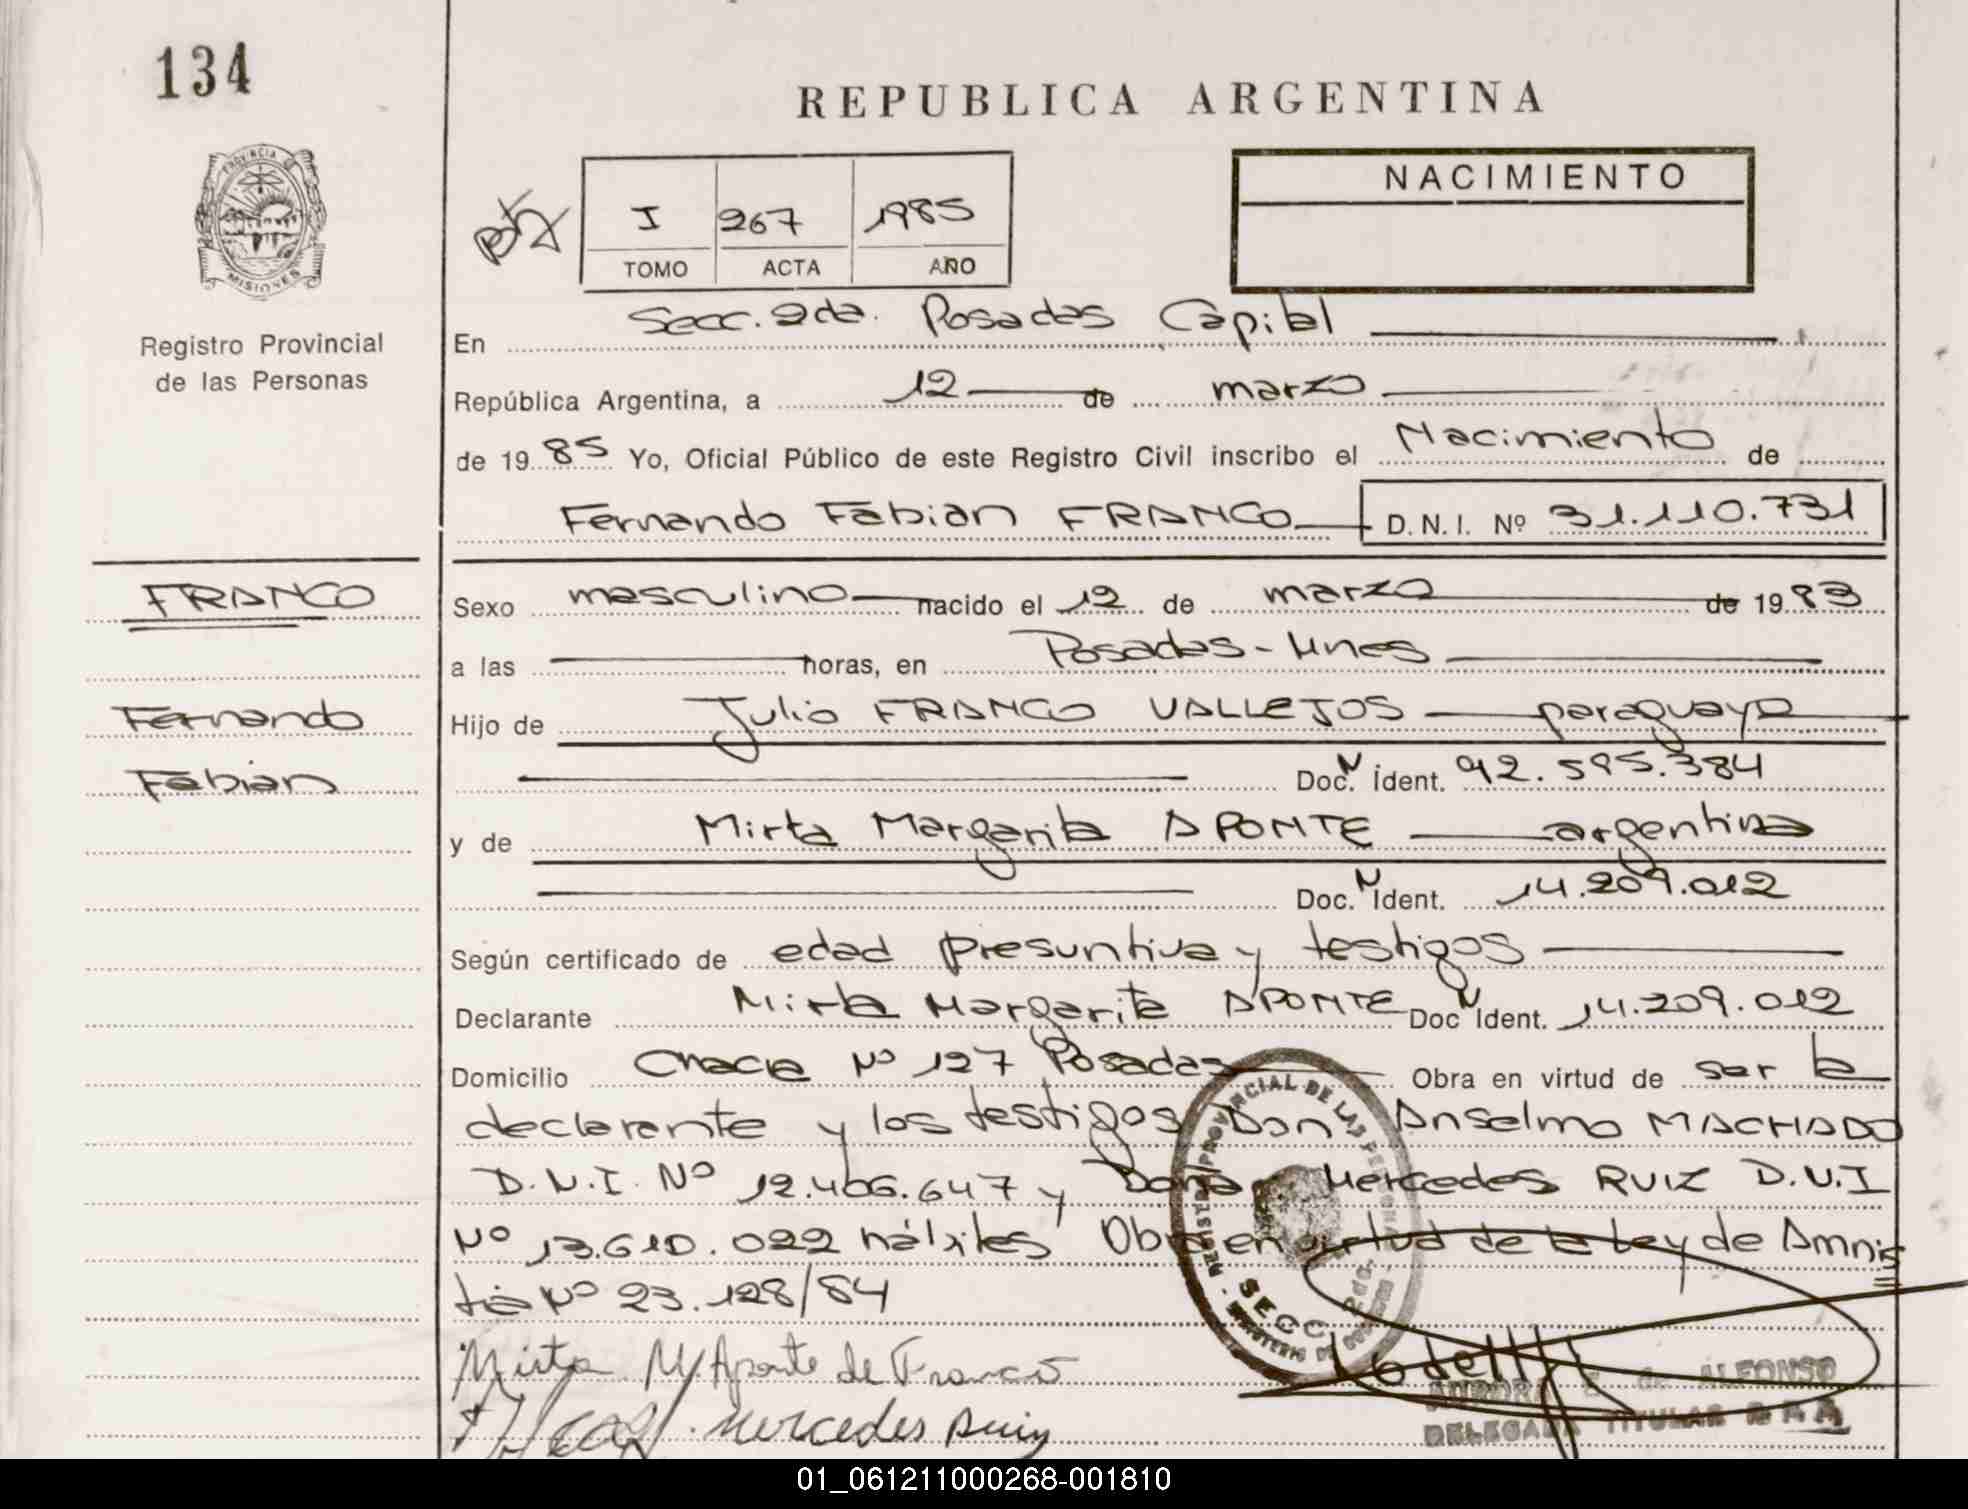 134
REPUBLICA ARGENTINA
PROVINCIA DE
MISIONES
Registro Provincial
de las Personas
I 267 1985
TOMO ACTA AÑO
NACIMIENTO
En Secc. 2da. Posadas Capital
República Argentina, a 12 de marzo
de 1985 Yo, Oficial Público de este Registro Civil inscribo el Nacimiento de
Fernando Fabian FRANCO D.N.I. Nº 31.110.731
FRANCO
Fernando
Fabian
Sexo masculino nacido el 12 de marzo de 1983
a las horas, en Posadas - Mnes
Hijo de Julio FRANCO VALLEJOS paraguaya
Doc. N Ident. 92.595.384
y de Mirta Margarita APONTE argentina
Doc. N Ident. 14.209.012
Según certificado de edad presuntiva y testigos
Declarante Mirta Margarita APONTE Doc N Ident. 14.209.012
Domicilio Chacra Nº 127 Posadas Obra en virtud de ser la
declarante y los testigos Don Anselmo MACHADO
D.N.I. Nº 12.406.647 y Doña Mercedes RUIZ D.N.I
Nº 13.610.022 hábiles Obra en virtud de la Ley de Amnis
tia Nº 23.128/84
Mirta M. Aponte de Franco
Mercedes Ruiz
REGISTRO PROVINCIAL DE LAS PERSONAS
SECC. 2da.
MINISTERIO DE GOBIERNO
AURORA E. de ALFONSO
DELEGADA TITULAR R.P.P.
01_061211000268-001810